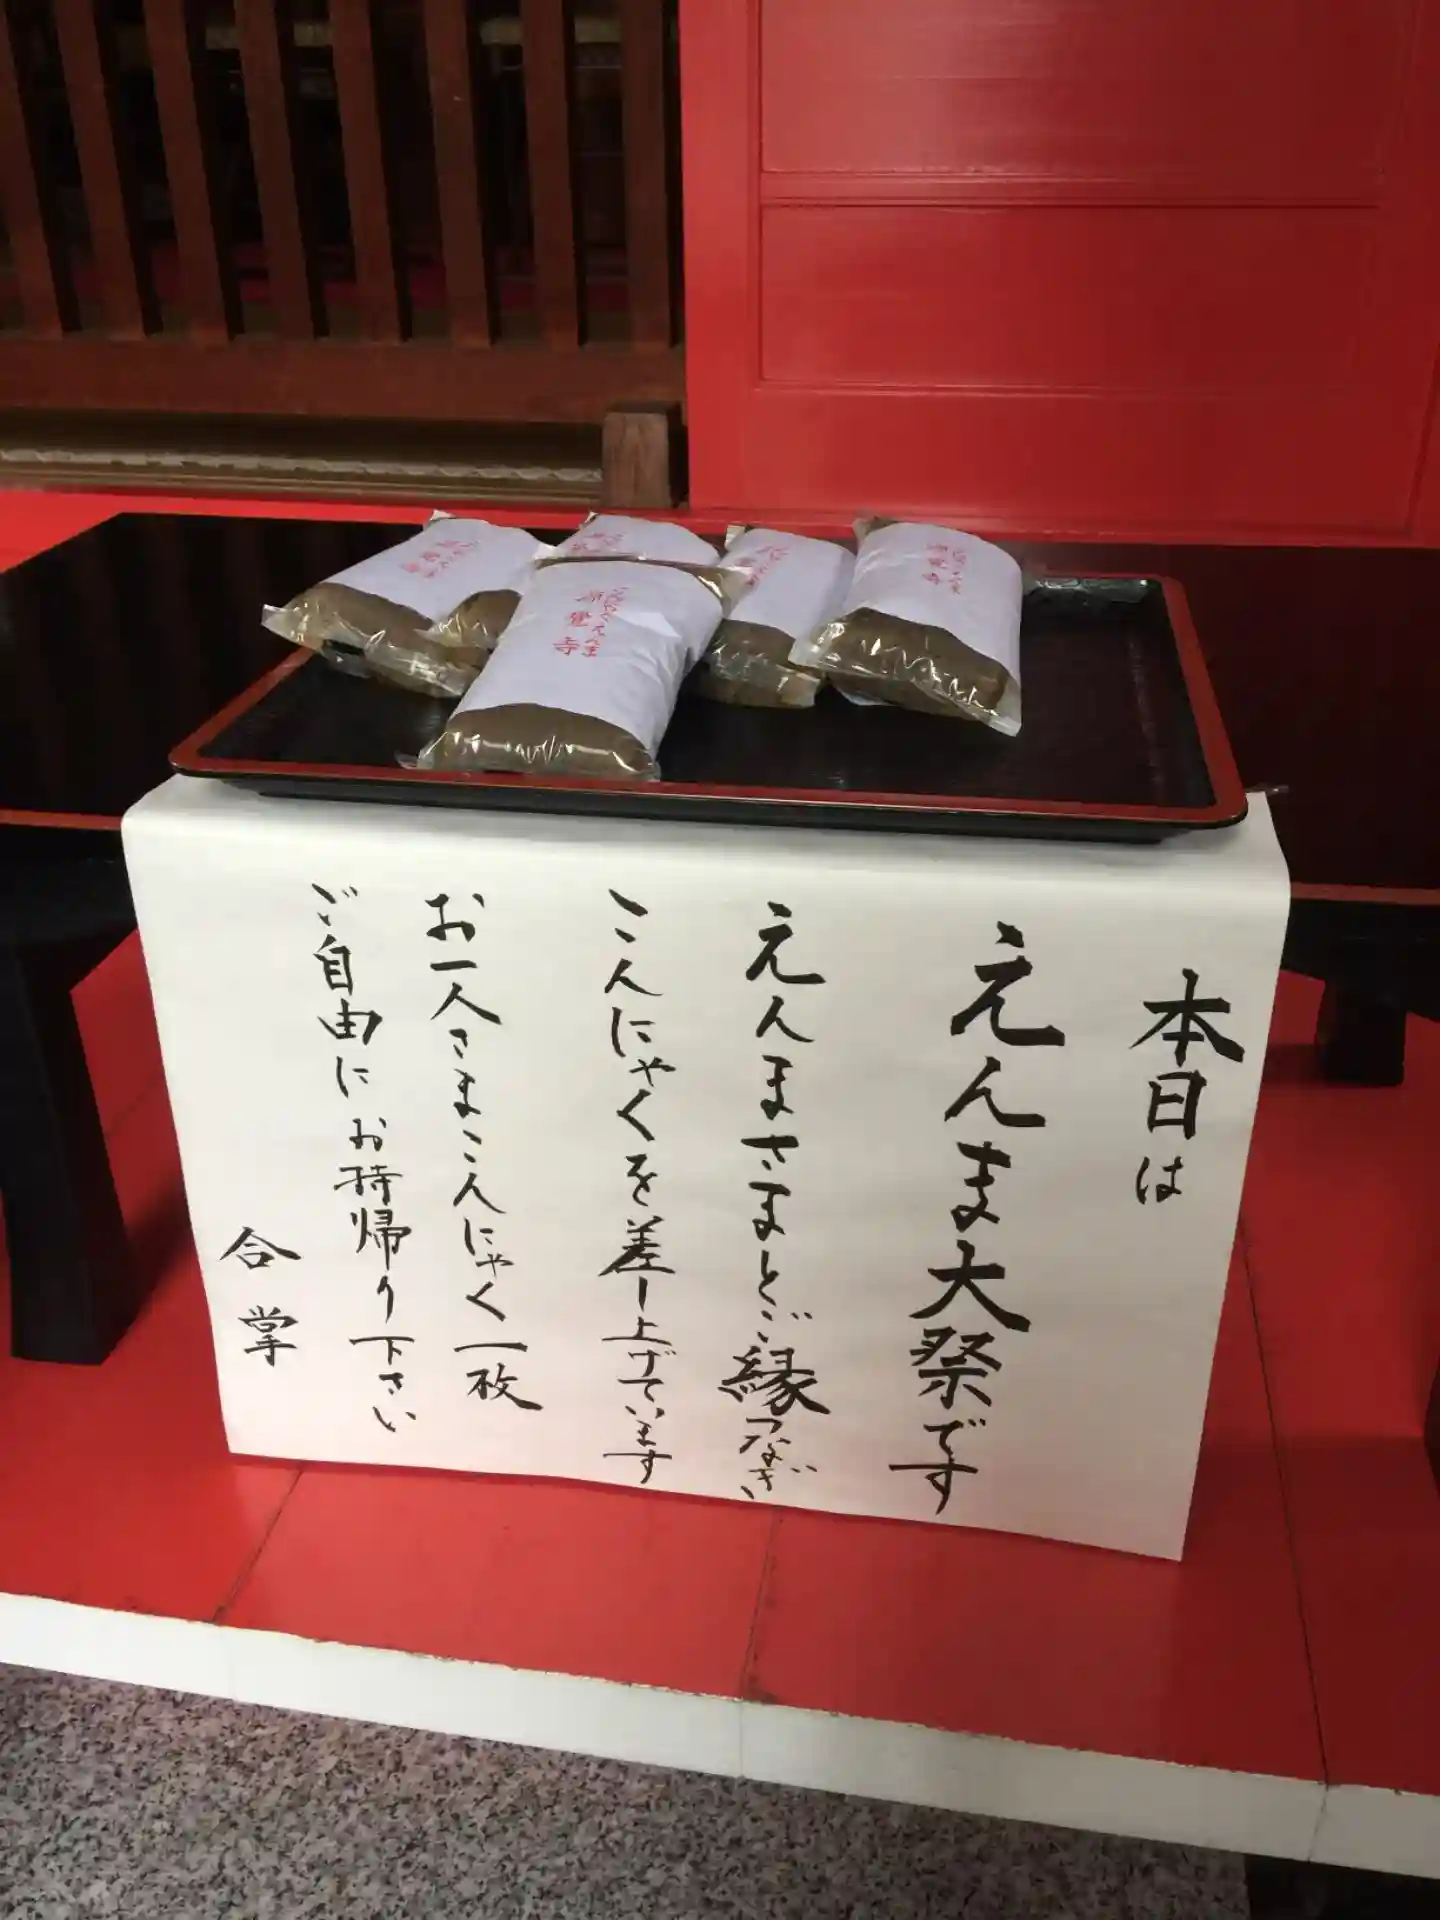 本日は
えんま大祭です
えんまさまとご縁つなぎ
こんにゃくを差し上げています
お一人さまこんにゃく一枚
ご自由にお持帰り下さい
合掌
こんにゃくえんま
源覺寺